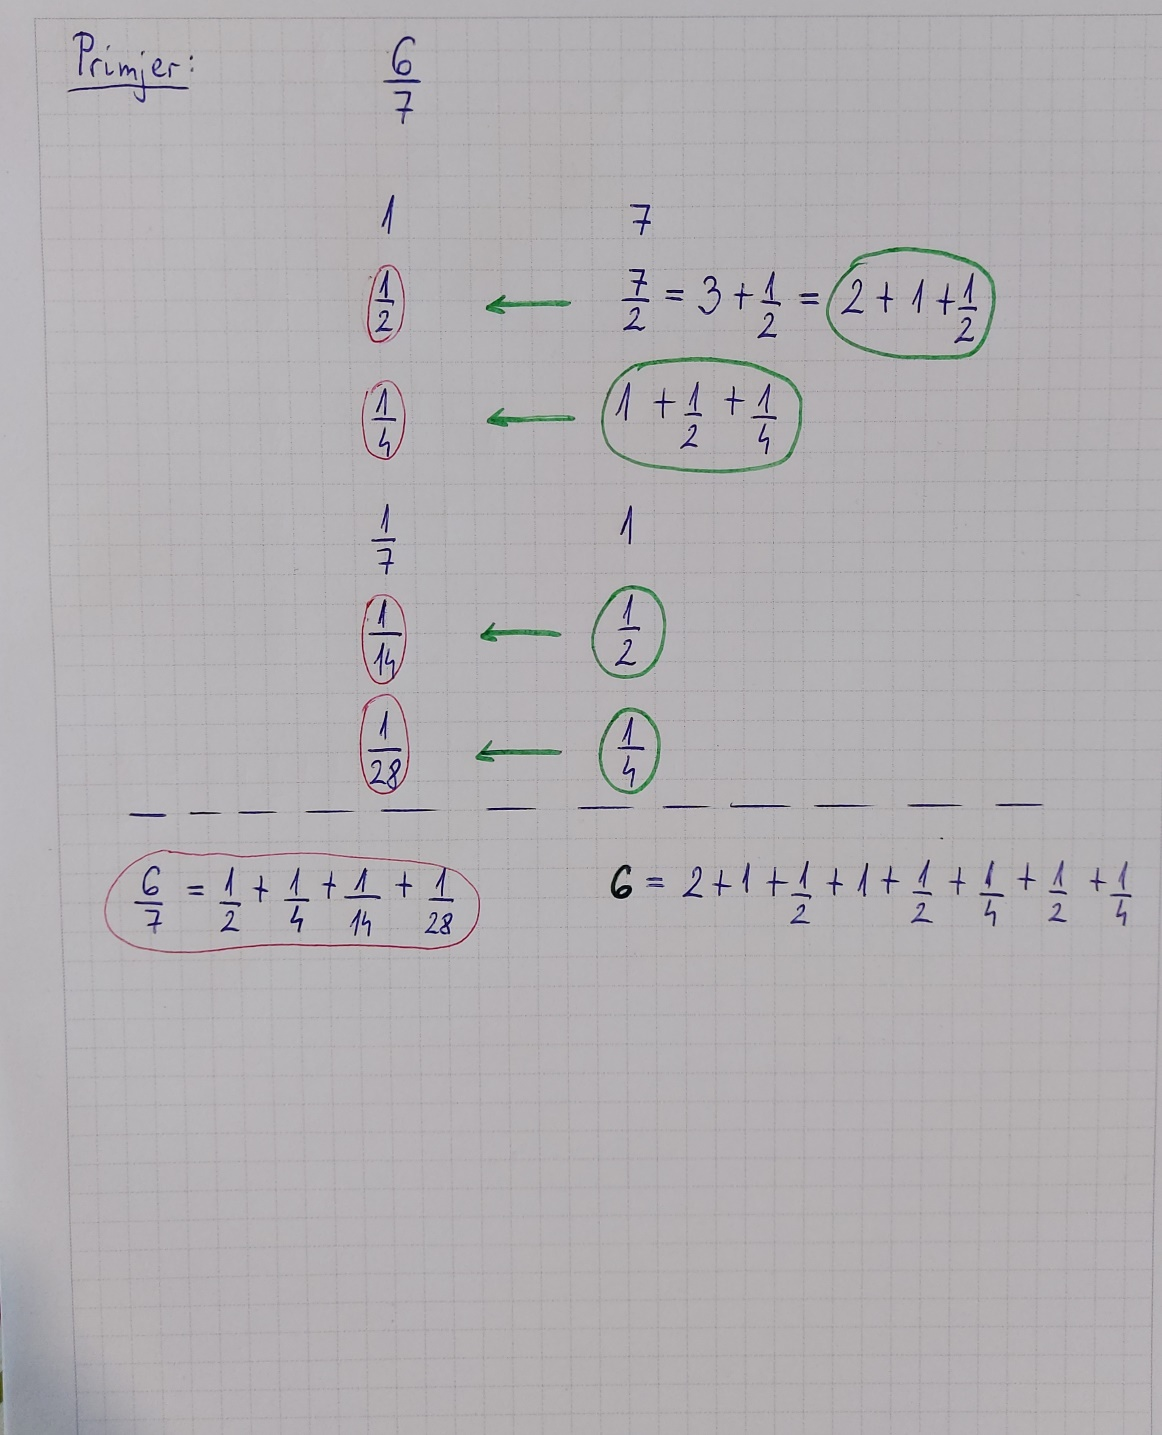 Primjer: 6/7
1 7
1/2 ← 7/2 = 3 + 1/2 = 2 + 1 + 1/2
1/4 ← 1 + 1/2 + 1/4
1/7 1
1/14 ← 1/2
1/28 ← 1/4
6/7 = 1/2 + 1/4 + 1/14 + 1/28 6 = 2 + 1 + 1/2 + 1 + 1/2 + 1/4 + 1/2 + 1/4